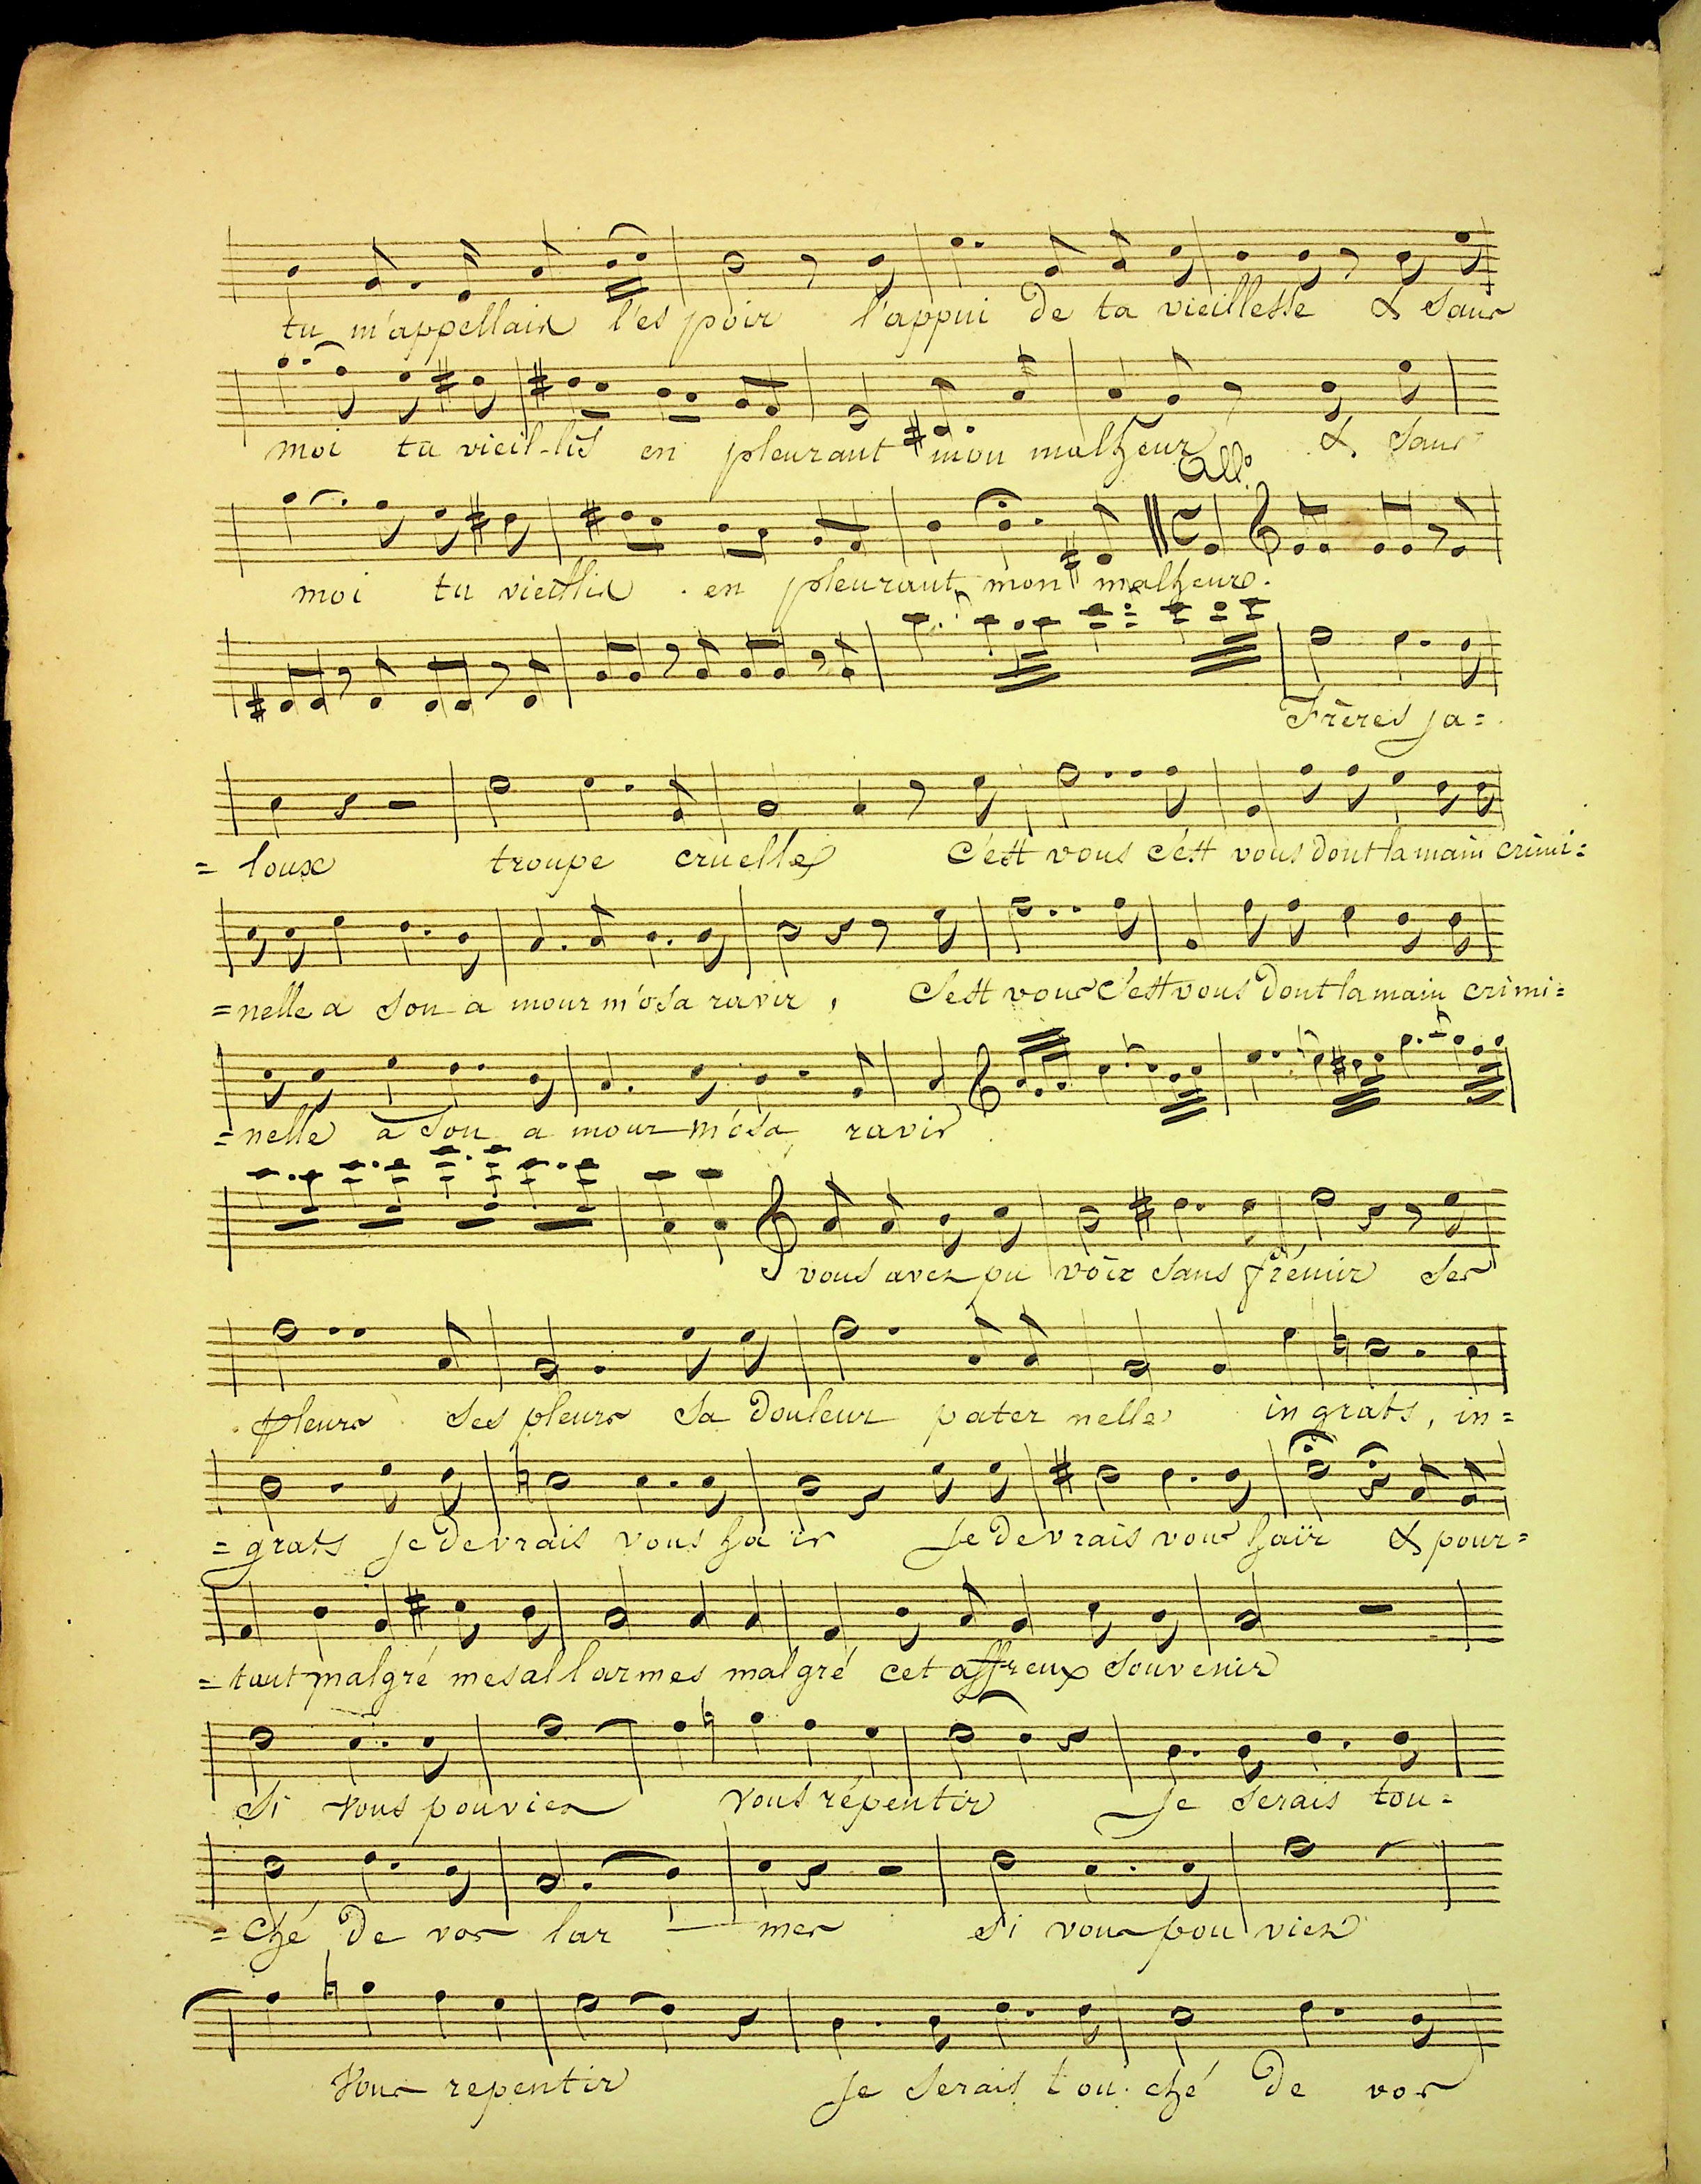 tu m'appellais l'es poir l'appui de ta vieillesse & sans
moi tu vieil-lis en pleurant mon malheur & sans
All.º
moi tu vieillis en pleurant mon malheur.
Frères ja=
=loux troupe cruelle c'est vous c'est vous dont la main crimi=
=nelle a son a mour m'osa ravir, C'est vous C'est vous dont la main crimi=
=nelle a son a mour m'osa ravir
vous avez pu voir sans frémir ses
pleurs ses pleurs sa douleur pater nelle in grats, in=
=grats je devrais vous ha ïr Je devrais vous haïr & pour=
=tant malgré mes al larmes malgré cet affreux souvenir
Si vous pouviez vous répentir Je serais tou=
=ché de vos lar — mes Si vous pou viez
Vous repentir Je serais tou ché de vos